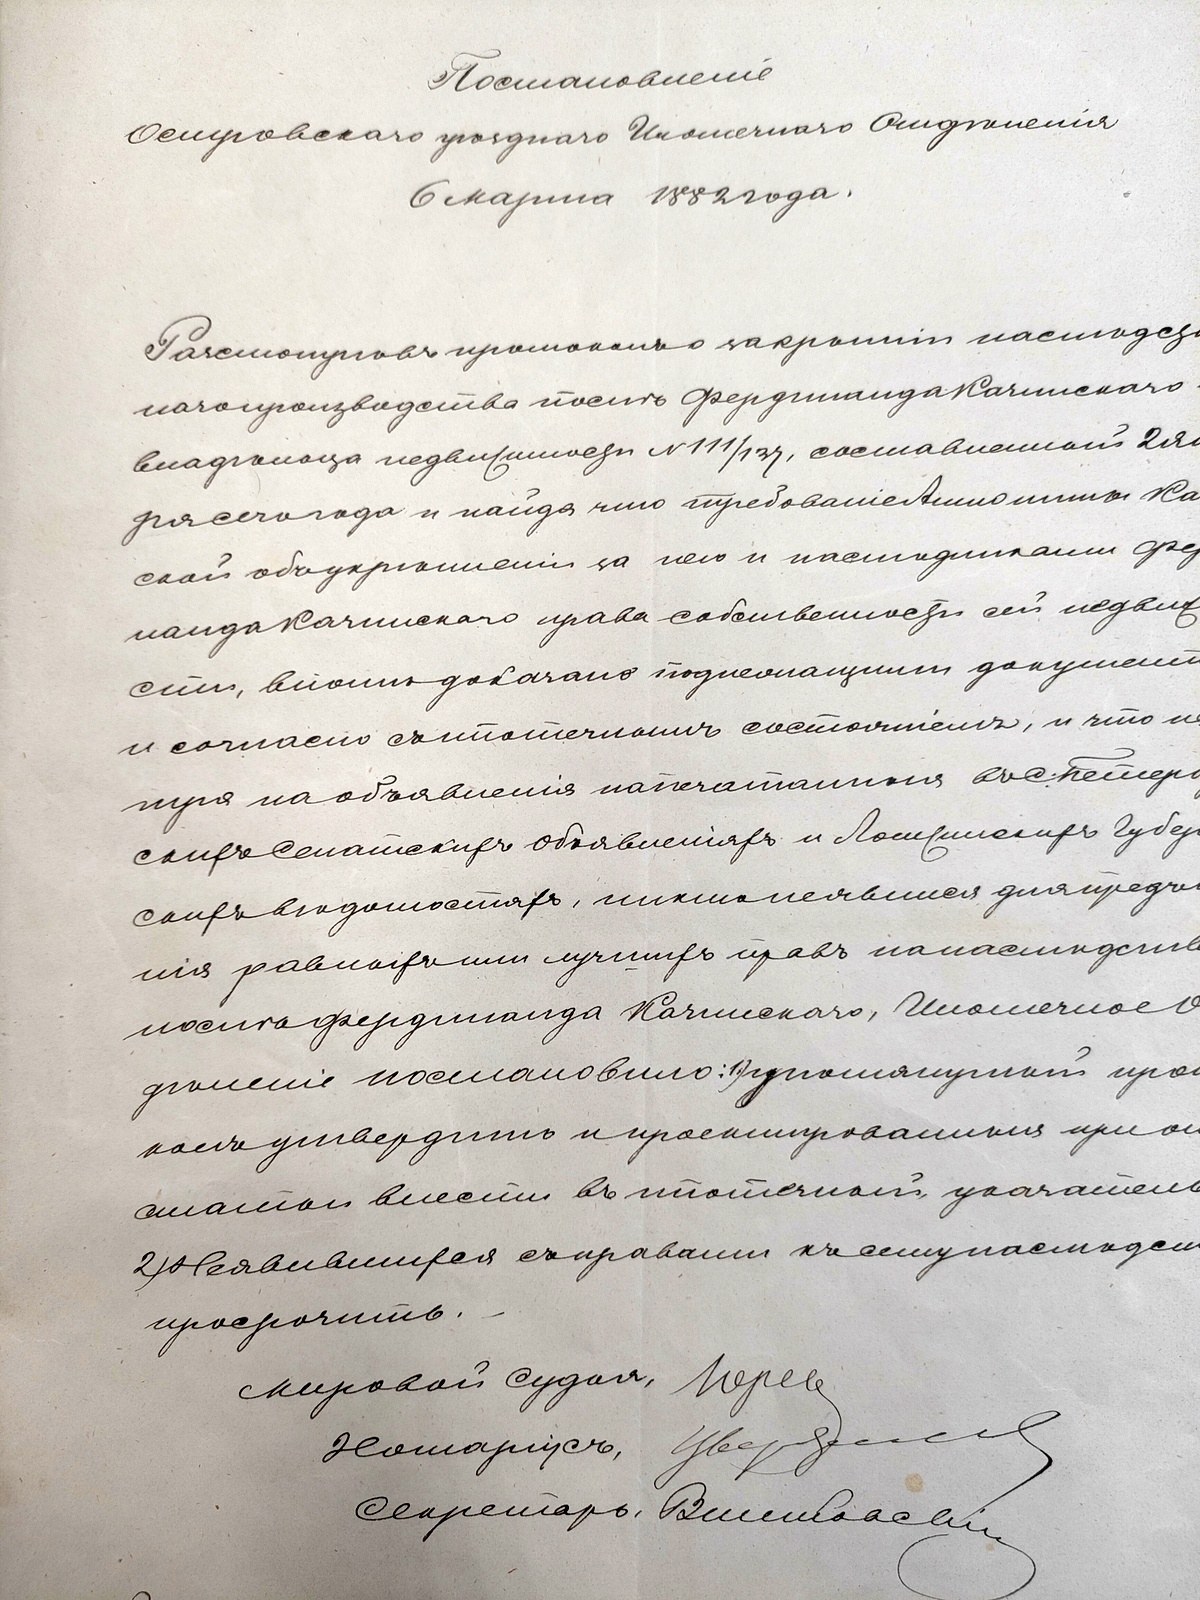 Постановленіе
Островскаго уѣзднаго Ипотечнаго Отдѣленія
6 Марта 1882 года.
Разсмотрѣвъ протоколъ о закрытіи наслѣдст
наго производства послѣ Фердинанда Качинскаго
владѣльца недвижимости № 111/137, составленной 2 Ян
ря сего года и найдя что требованіе Антонины Ка
ской объ укрѣпленіи за нею и наслѣдниками Фер
нанда Качинскаго права собственности сей недвиж
сти, вполнѣ доказано подлежащими документ
и согласно съ ипотечнымъ состояніемъ, и что не
тря на объявленія напечатанныя въ С. Петерб
скихъ Сенатскихъ Объявленіяхъ и Ломжинскихъ Губер
скихъ вѣдомостяхъ, никто не явился для предъяв
нія равныхъ или лучшихъ правъ на наслѣдств
послѣ Фердинанда Качинскаго, Ипотечное О
дѣленіе постановило: 1) упомянутой прото
колъ утвердить и проектированныя при ономъ
статьи внести въ ипотечной указатель
2) Неявившихся съ правами къ сему наслѣдст
просрочить.
Мировой Судья, Юрев
Нотаріусъ,
Секретарь,